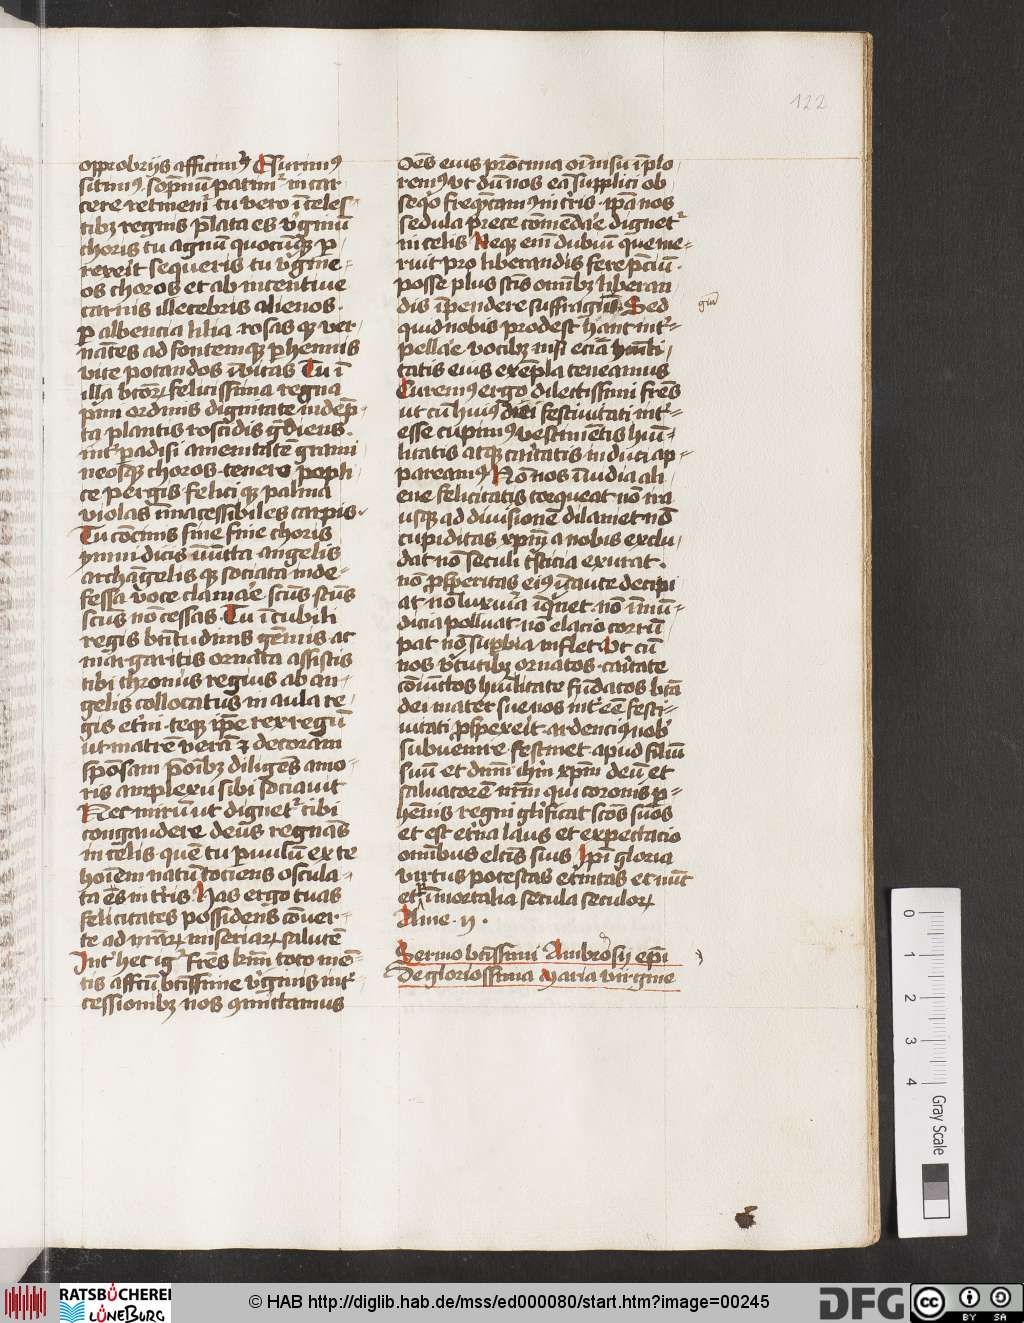 122
opprobrijs afficimur Esurimus
sitimus sopnium patimur in car
cere retinemur tu vero in celes
tibz regnis prelata es virginum
choris tu agnum quocunque per
rexerit sequeris tu virgine
os choros et ab incentive
carnis illecebris alienos
per albencia lilia rosas que ver
nantes ad fontemque perhennis
vite potandos invitas Tu in
illa beatorum felicissima regna
primi ordinis dignitate indep
ta plantis roscidis gradiens
inter paradisi amenitatem grami
neosque choros tenero popli
ce pergis felicique palma
violas inmarcessibiles carpis
Tu concinis sine fine choris
ymnidicis iuncta angelis
archangelisque sociata inde
fessa voce clamare sanctus sanctus
sanctus non cessas Tu in cubili
regis beatitudinis gemmis ac
margaritis ornata assistis
tibi thronus regius ab an
gelis collocatus in aula re
gis eterni teque ipse rex regum
ut matrem veram et decoram
sponsam pre omnibz diligens amo
ris amplexu sibi sociavit
Nec mirum ut dignetur tibi
congaudere deus regnans
in celis quem tu parvulum ex te
hominem natum tociens oscula
ta es in terris Has ergo tuas
felicitates possidens conver
te ad nostrarum miseriarum salutem
Inter hec igitur fratres karissimi toto men
tis affectu beatissime virginis inter
cessionibz nos committamus
Omnes eius patrocinia omni nisu implo
remus ut dum nos eam supplici ob
sequio frequentamus in terris ipsa nos
sedula prece commendare dignetur
in celis Neque enim dubium que me
ruit pro liberandis ferre precium
posse plus sanctis omnibz liberan
dis impendere suffragium Sed
giu
quid nobis prodest hanc inter
pellare vocibz nisi eciam humili
tatis eius exempla teneamus
Curemus ergo dilectissimi fratres
ut cum huius diei festivitati inter
esse cupimus vestimentis humi
litatis atque caritatis induci ap
pareamus Non nos invidia ali
ene felicitatis torqueat non ira
usque ad divisionem dilaniet non
cupiditas christum a nobis exclu
dat non seculi tristicia exurat
non prosperitas eius incaute decipi
at non luxuria inquinet non inmun
dicia polluat non elacio corrum
pat non superbia inflet Ut cum
nos virtutibz ornatos caritate
coniunctos humilitate fundatos beata
dei mater sue nos inter esse festi
vitati prospexerit ardencius nobis
subvenire festinet apud filium
suum et dominum ihesum christum deum et
salvatorem nostrum qui coronis per
hennis regni glorificat sanctos suos
et est eterna laus et expectacio
omnibus electis suis Ipsi gloria
virtus potestas eternitas et nunc
et in inmortalia secula seculorum
Amen
Sermo beatissimi Ambrosij episcopi
De gloriosissima Maria virgine
0 1 2 3 4
Gray Scale
RATSBÜCHEREI
LÜNEBURG
© HAB http://diglib.hab.de/mss/ed000080/start.htm?image=00245
DFG
cc
BY SA